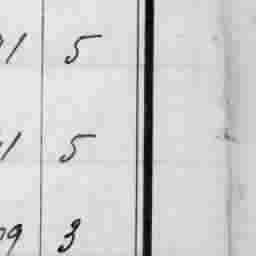 1 5
1 5
9 3